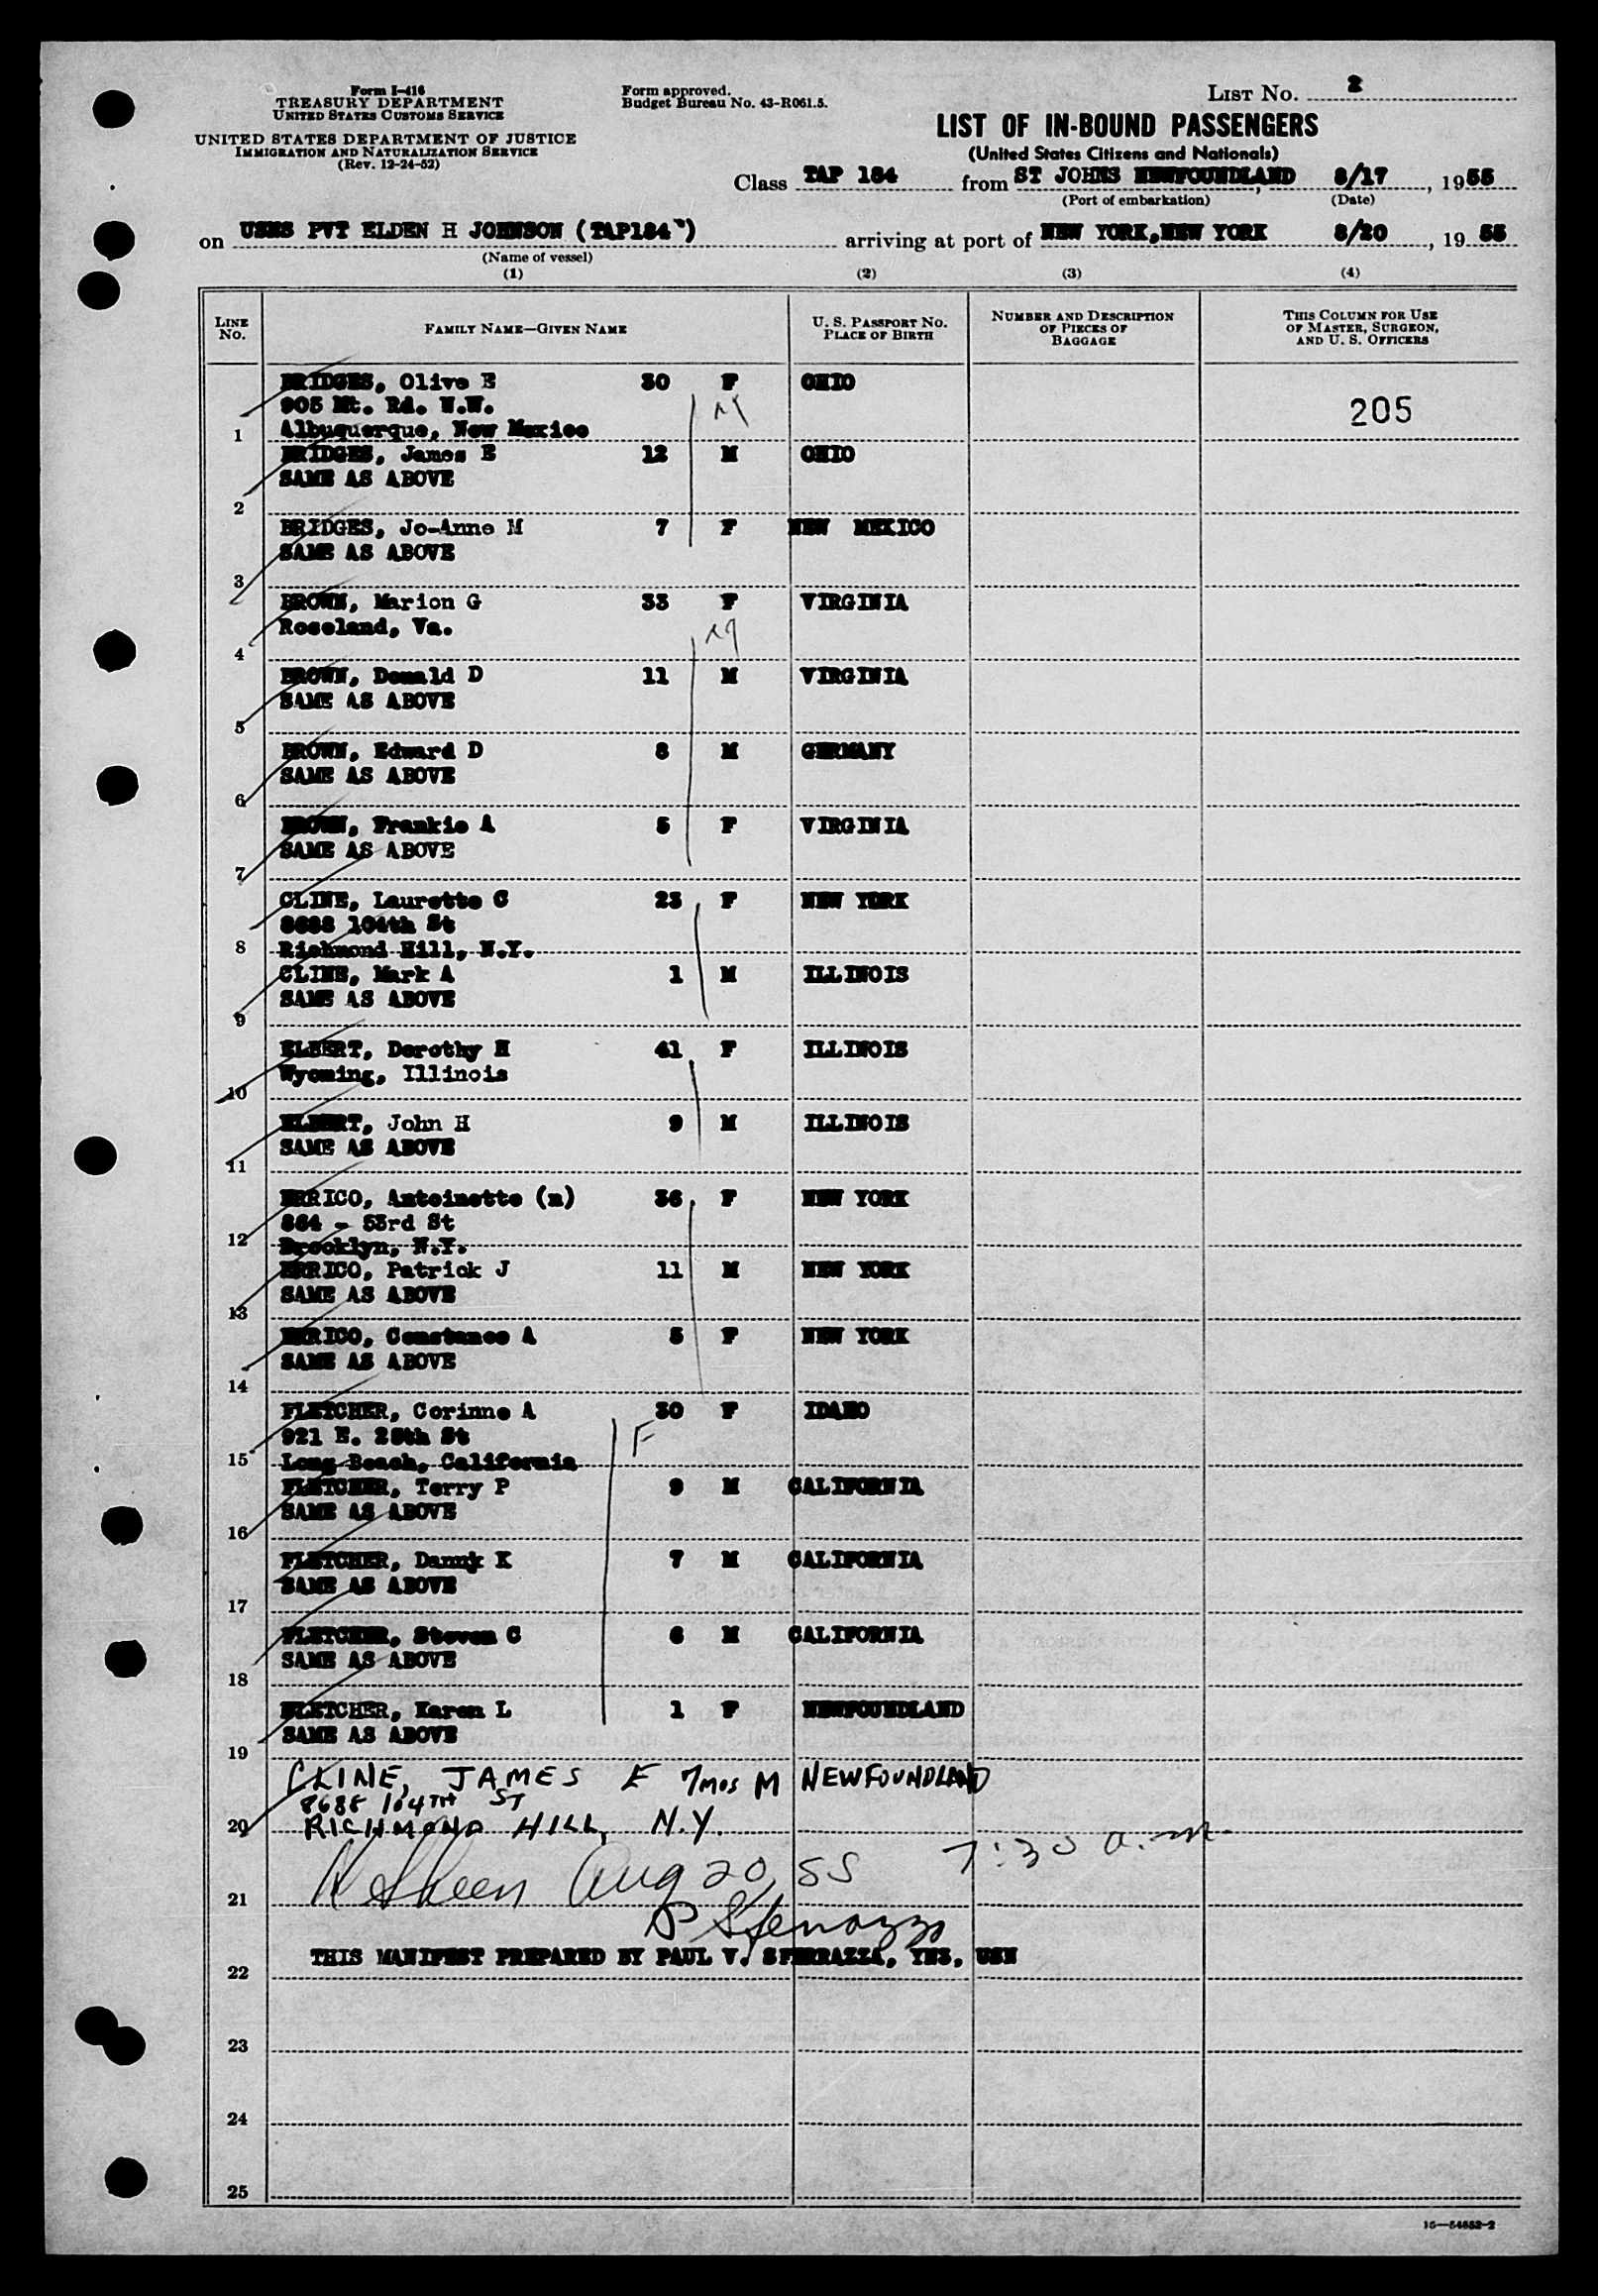 Form I-416
TREASURY DEPARTMENT
UNITED STATES CUSTOMS SERVICE
UNITED STATES DEPARTMENT OF JUSTICE
IMMIGRATION AND NATURALIZATION SERVICE
(Rev. 12-24-52)
Form approved.
Budget Bureau No. 43-R061.5.
LIST NO. 2
LIST OF IN-BOUND PASSENGERS
(United States Citizens and Nationals)
Class TAP 184 from ST JOHNS NEWFOUNDLAND, 8/17, 1955
(Port of embarkation) (Date)
on USNS PVT ELDEN H JOHNSON (TAP184) arriving at port of NEW YORK, NEW YORK 8/20, 1955
(Name of vessel)
(1) (2) (3) (4)
LINE NO. FAMILY NAME—GIVEN NAME U. S. PASSPORT NO. PLACE OF BIRTH NUMBER AND DESCRIPTION OF PIECES OF BAGGAGE THIS COLUMN FOR USE OF MASTER, SURGEON, AND U. S. OFFICERS
BRIDGES, Olive E 30 F OHIO
905 Mt. Rd. N.W. 205
1 Albuquerque, New Mexico
BRIDGES, James E 12 M OHIO
SAME AS ABOVE
2
BRIDGES, Jo-Anne M 7 F NEW MEXICO
SAME AS ABOVE
3
BROWN, Marion G 33 F VIRGINIA
Roseland, Va.
4
BROWN, Donald D 11 M VIRGINIA
SAME AS ABOVE
5
BROWN, Edward D 8 M GERMANY
SAME AS ABOVE
6
BROWN, Frankie A 5 F VIRGINIA
SAME AS ABOVE
7
CLINE, Laurette C 23 F NEW YORK
8688 104th St
8 Richmond Hill, N.Y.
CLINE, Mark A 1 M ILLINOIS
SAME AS ABOVE
9
ELBERT, Dorothy H 41 F ILLINOIS
Wyoming, Illinois
10
ELBERT, John H 9 M ILLINOIS
SAME AS ABOVE
11
ERRICO, Antoinette (n) 36 F NEW YORK
864 - 53rd St
12 Brooklyn, N.Y.
ERRICO, Patrick J 11 M NEW YORK
SAME AS ABOVE
13
ERRICO, Constance A 5 F NEW YORK
SAME AS ABOVE
14
FLETCHER, Corinne A 30 F IDAHO
921 E. 28th St F
15 Long Beach, California
FLETCHER, Terry P 9 M CALIFORNIA
SAME AS ABOVE
16
FLETCHER, Danny K 7 M CALIFORNIA
SAME AS ABOVE
17
FLETCHER, Steven C 6 M CALIFORNIA
SAME AS ABOVE
18
FLETCHER, Karen L 1 F NEWFOUNDLAND
SAME AS ABOVE
19
CLINE, JAMES E 7 MOS M NEWFOUNDLAND
8688 104TH ST
20 RICHMOND HILL, N.Y.
Aug 20, 55 7:30 a.m.
21
THIS MANIFEST PREPARED BY PAUL V. SFERRAZZA, YN3, USN
22
23
24
25
16—54652-2